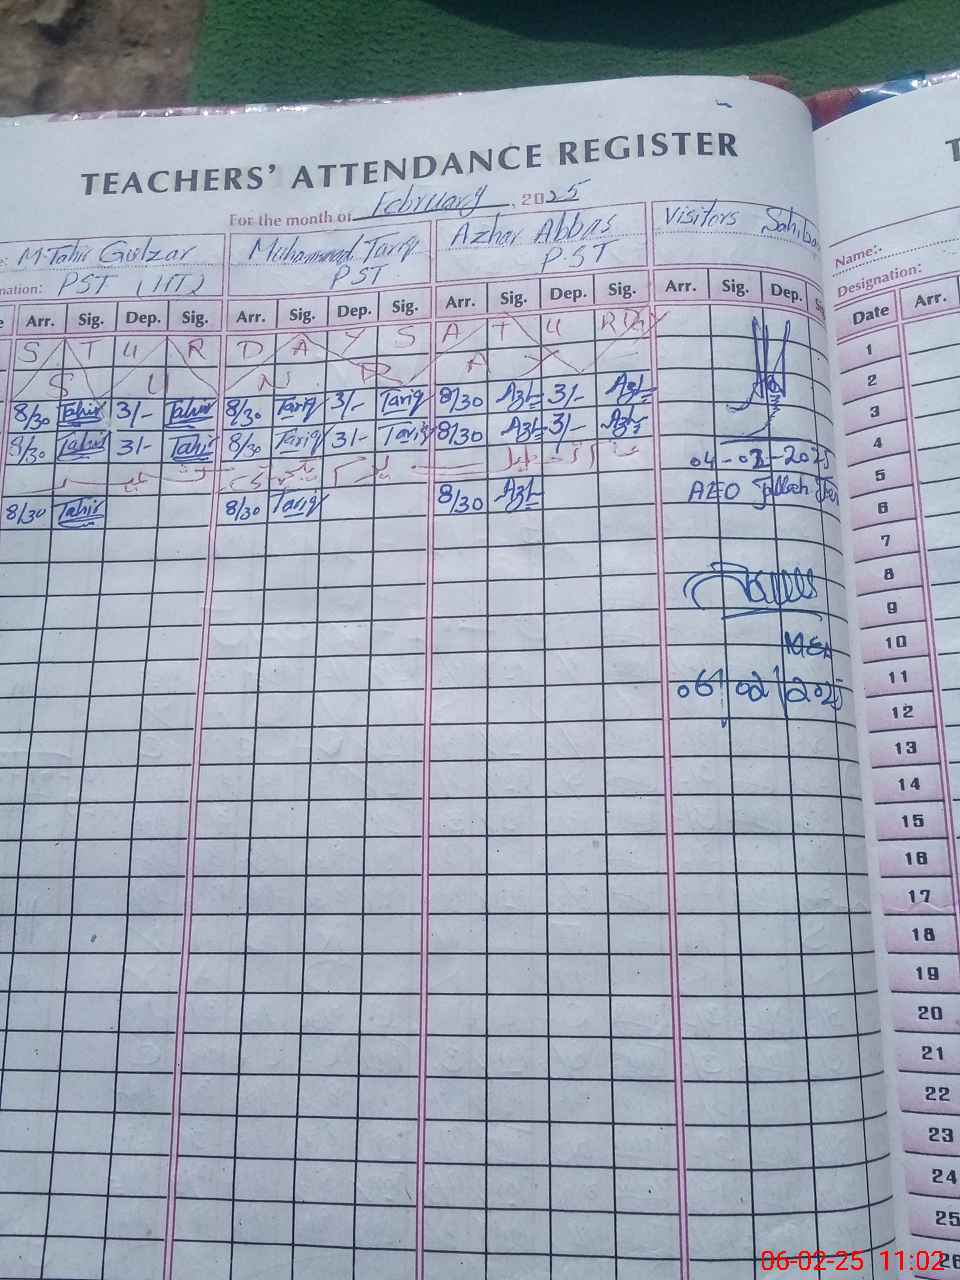 TEACHERS' ATTENDANCE REGISTER
For the month of February, 2025
M. Tahir Gulzar Muhammad Tariq Azhar Abbas Visitors
Name:-
nation: PST (HT) PST PST
Designation:
Arr. Sig. Dep. Sig. Arr. Sig. Dep. Sig. Arr. Sig. Dep. Sig. Arr. Sig. Dep.
Date Arr.
S A T U R D A Y
S U N D A Y
8/30 Tahir 3/- Tahir 8/30 Tariq 3/- Tariq 8/30 Azh 3/- Azh
8/30 Tahir 3/- Tahir 8/30 Tariq 3/- Tariq 8/30 Azh 3/- Azh
04-02-2025
8/30 Tahir 8/30 Tariq 8/30 Azh
AEO
MEA
06/02/2025
1
2
3
4
5
6
7
8
9
10
11
12
13
14
15
16
17
18
19
20
21
22
23
24
25
26
06-02-25 11:02